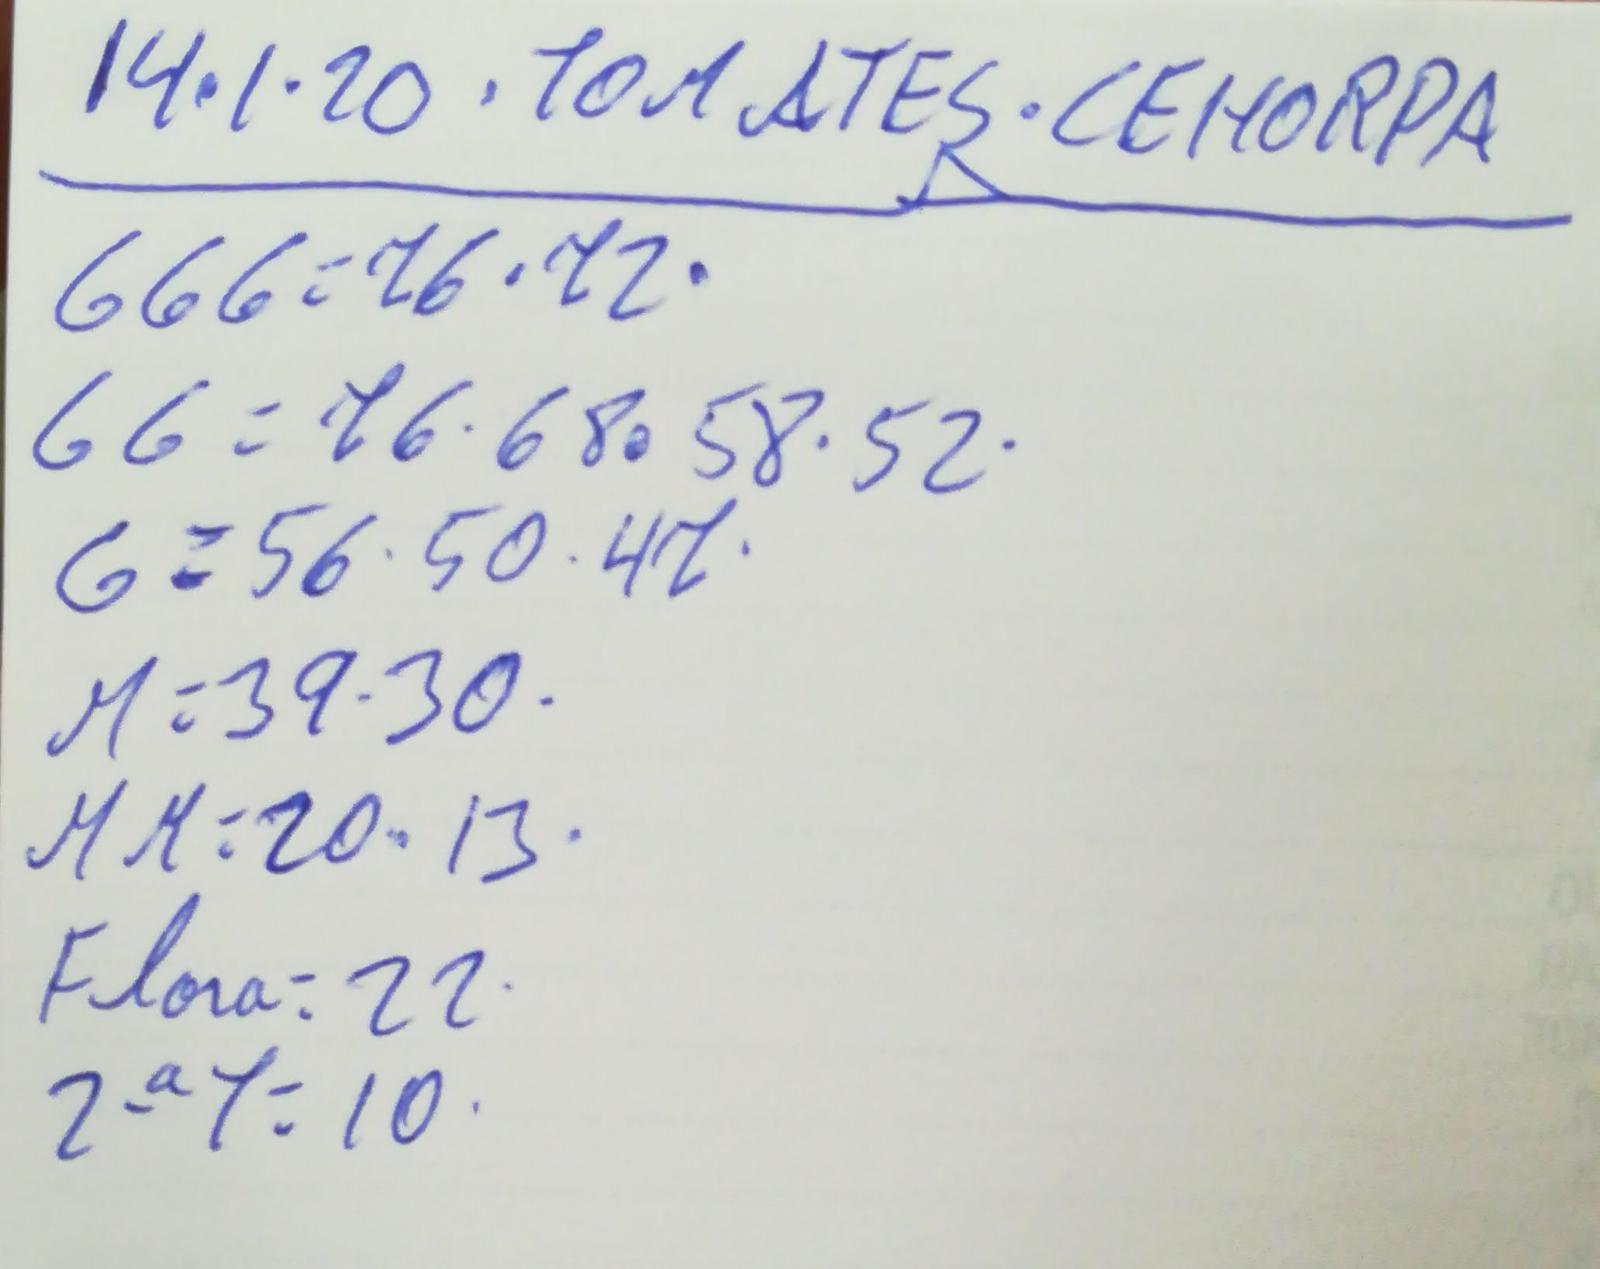 14.1.20.TOMATES.CEHORPA
GGG=76.72.
GG=76.68.58.52.
G=56.50.47.
M=39.30.
MM=20.13.
Flora=22.
2-ª T=10.